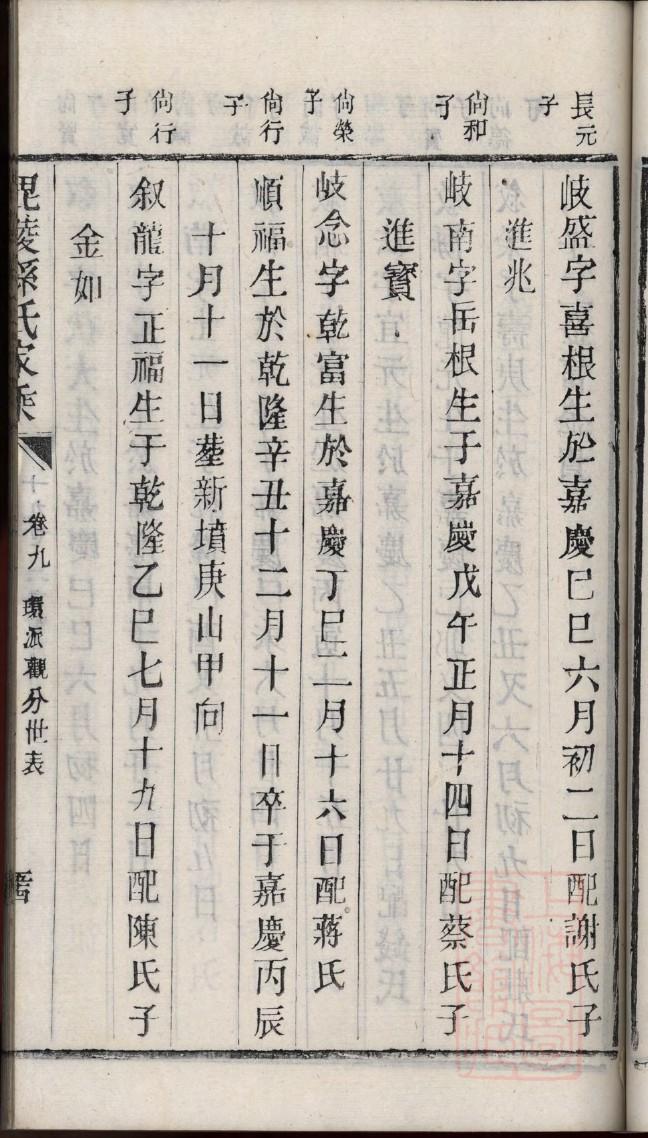 長元子
岐盛字喜根生於嘉慶己巳六月初二日配謝氏子
進兆
尙和子
岐南字岳根生于嘉慶戊午正月十四日配蔡氏子
進寳
尙榮子
岐念字乾富生於嘉慶丁巳二月十六日配蔣氏
尙行子
順福生於乾隆辛丑十二月十一日卒于嘉慶丙辰
十月十一日塟新墳庚山甲向
尙行子
叙龍字正福生于乾隆乙巳七月十九日配陳氏子
金如
毘陵孫氏家乘
卷九 環派觀分世表